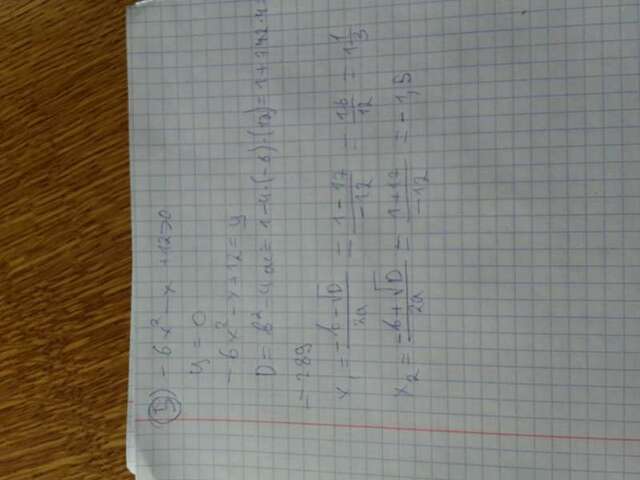 г) -6x² - x + 12 > 0
y = 0
-6x² - x + 12 = y
D = b² - 4ac = 1 - 4·(-6)·(12) = 1 +
= 289
x₁ = \frac{-b - √D}{2a} = \frac{1 - 17}{-12} = \frac{16}{12} = 1\frac{1}{3}
x₂ = \frac{-b + √D}{2a} = \frac{1 + 17}{-12} = -1,5